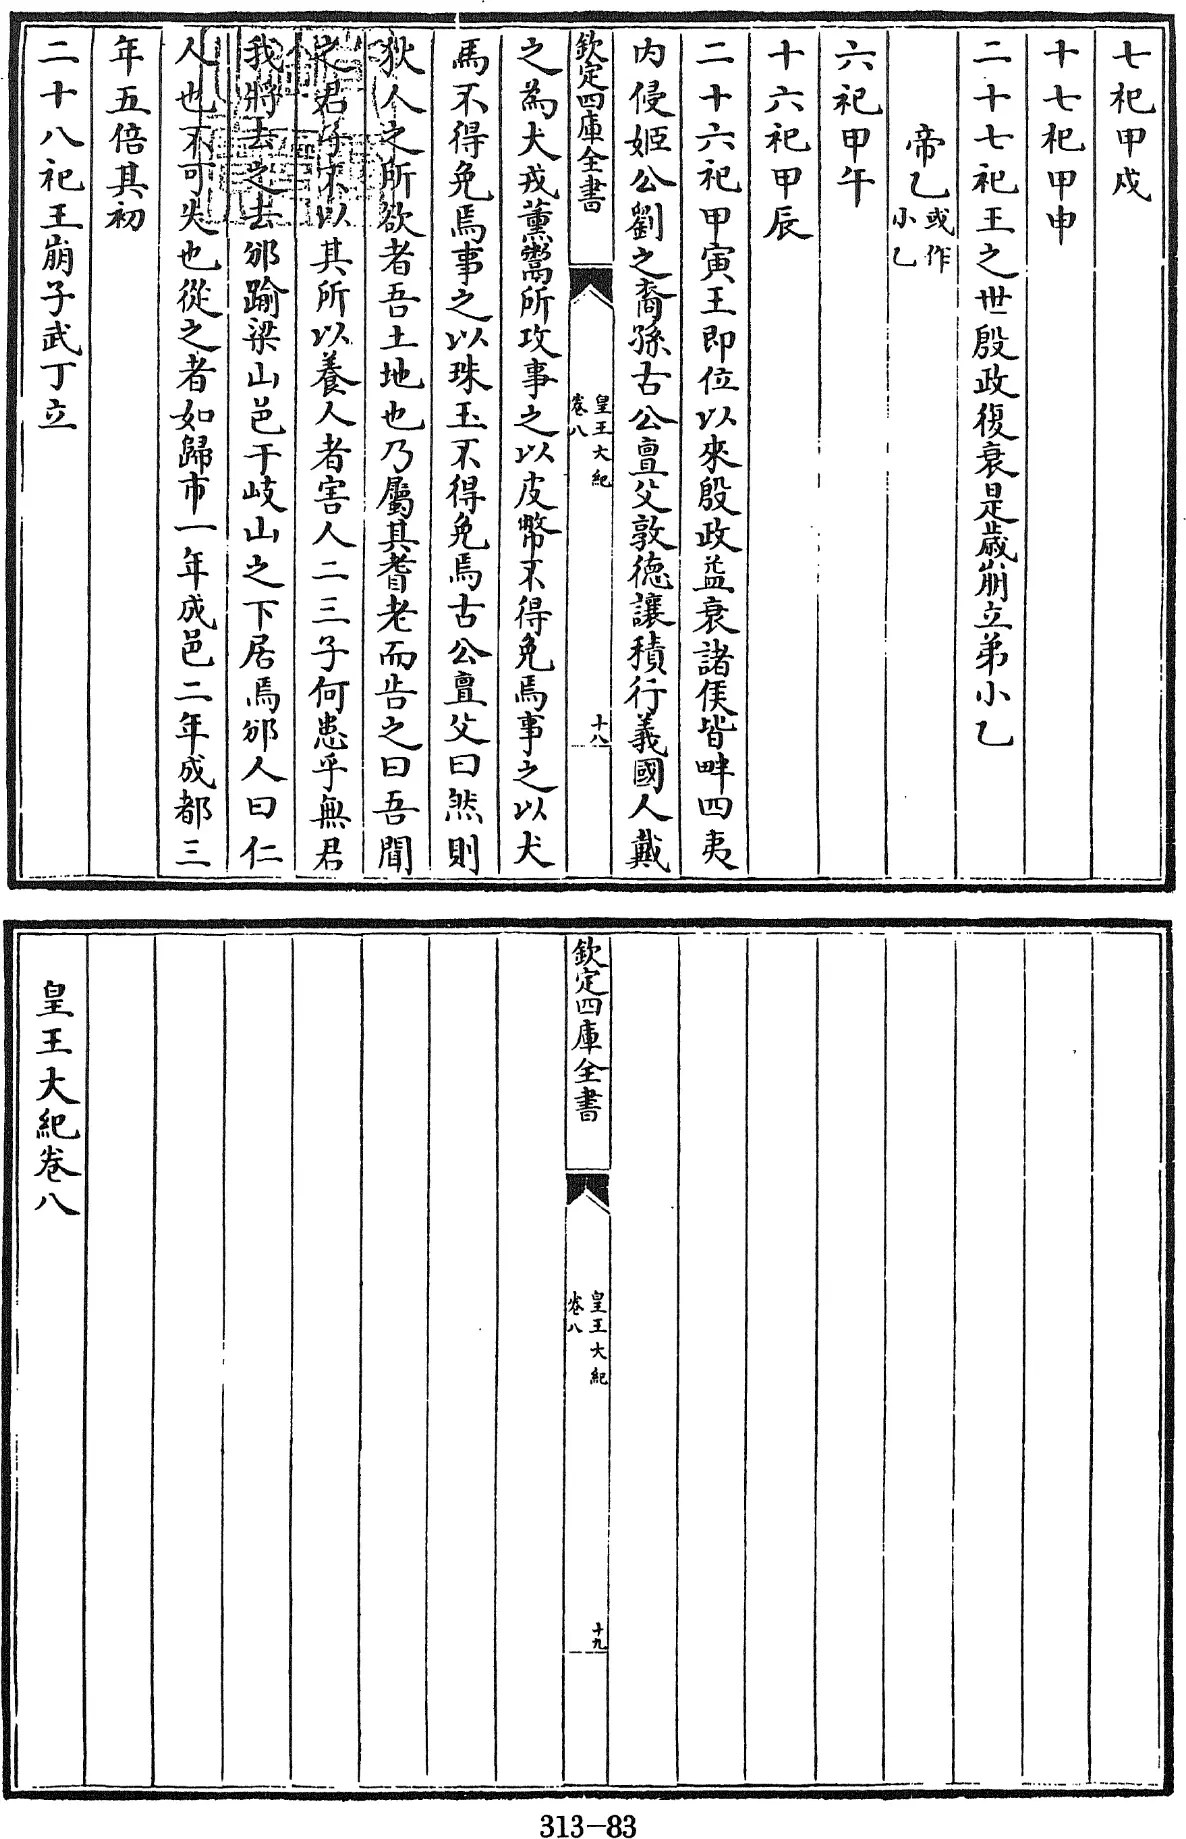 七祀甲戍
十七祀甲申
二十七祀王之世殷政復衰是歲崩立弟小乙
帝乙或作小乙
六祀甲午
十六祀甲辰
二十六祀甲寅王即位以來殷政益衰諸侯皆畔四夷
内侵姬公劉之裔孫古公亶父敦德讓積行義國人戴
欽定四庫全書
皇王大紀
卷八
十八
之為犬戎薰鬻所攻事之以皮幣不得免焉事之以犬
馬不得免焉事之以珠玉不得免焉古公亶父曰然則
狄人之所欲者吾土地也乃屬其耆老而告之曰吾聞
之君子不以其所以養人者害人二三子何患乎無君
我將去之去邠踰梁山邑于岐山之下居焉邠人曰仁
人也不可失也從之者如歸市一年成邑二年成都三
年五倍其初
二十八祀王崩子武丁立
欽定四庫全書
皇王大紀
卷八
十九
皇王大紀卷八
313-83